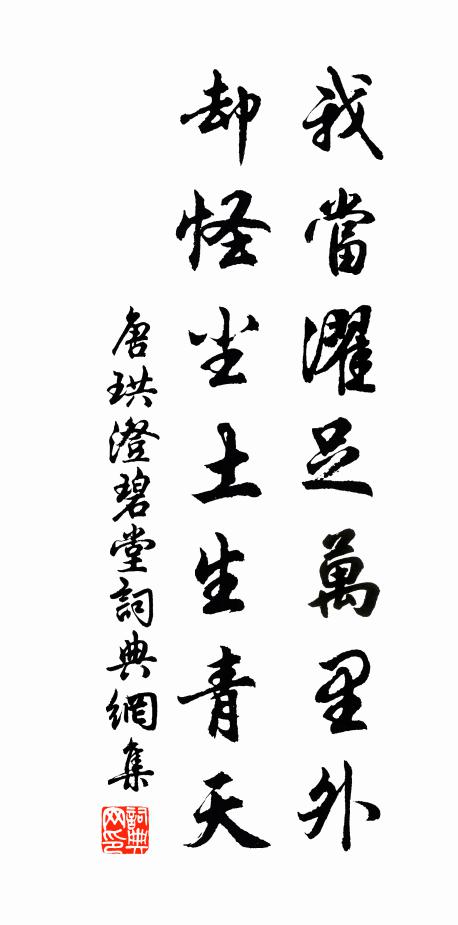 我當濯足萬里外
却怪尘土生青天
唐珙澄碧堂詞典網集
詞典网印